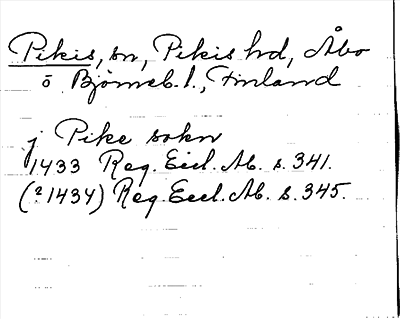 Pikis, sn, Pikis hd, Åbo
o Björneb. l., Finland
j Pike sokn
1433 Reg. Eccl. Ab. s. 341.
(? 1434) Reg. Eccl. Ab. s. 345.